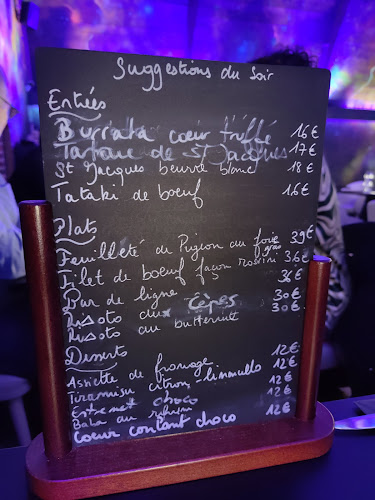 Suggestions du Soir
Entrées
Burrata coeur truffé 16€
Tartare de St Jacques 17€
St Jacques beurre blanc 18€
Tataki de boeuf 16€
Plats
Feuilleté de Pigeon au foie gras 39€
Filet de boeuf façon Rossini 36€
Bar de ligne 36€
Risoto aux Cèpes 30€
Risoto au butternut 30€
Desserts
Assiette de fromage 12€
Tiramisu citron-limoncello 12€
Entremet choco 12€
Baba au rhum 12€
Coeur coulant choco 12€